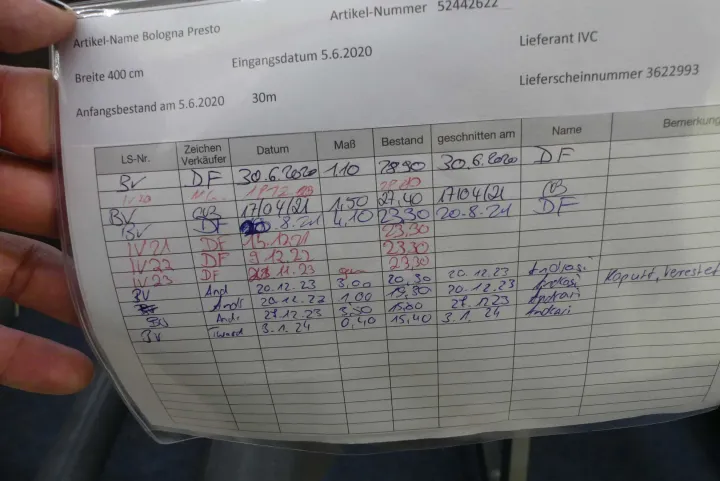 Artikel-Name Bologna Presto
Artikel-Nummer 52442622
Breite 400 cm
Eingangsdatum 5.6.2020
Lieferant IVC
Anfangsbestand am 5.6.2020 30m
Lieferscheinnummer 3622993
LS-Nr. Zeichen Verkäufer Datum Maß Bestand geschnitten am Name Bemerkung
BV DF 30.6.2020 1.10 28.90 30.6.2020 DF
BV 17/04/21 1,50 27,40 17/04/21
BV DF 20.8.21 4,10 23,30 20.8.21 DF
IV 21 DF 23,30
IV 22 DF 9.12.22 23,30
IV 23 DF 11.23 23,30
BV And 20.12.23 3,00 20,30 20.12.23 Kaputt,
Andr 1,00 19,30 20.12.23
BV And 27.12.23 3,50 15,80
BV 3.1.24 0,40 15,40 3.1.24